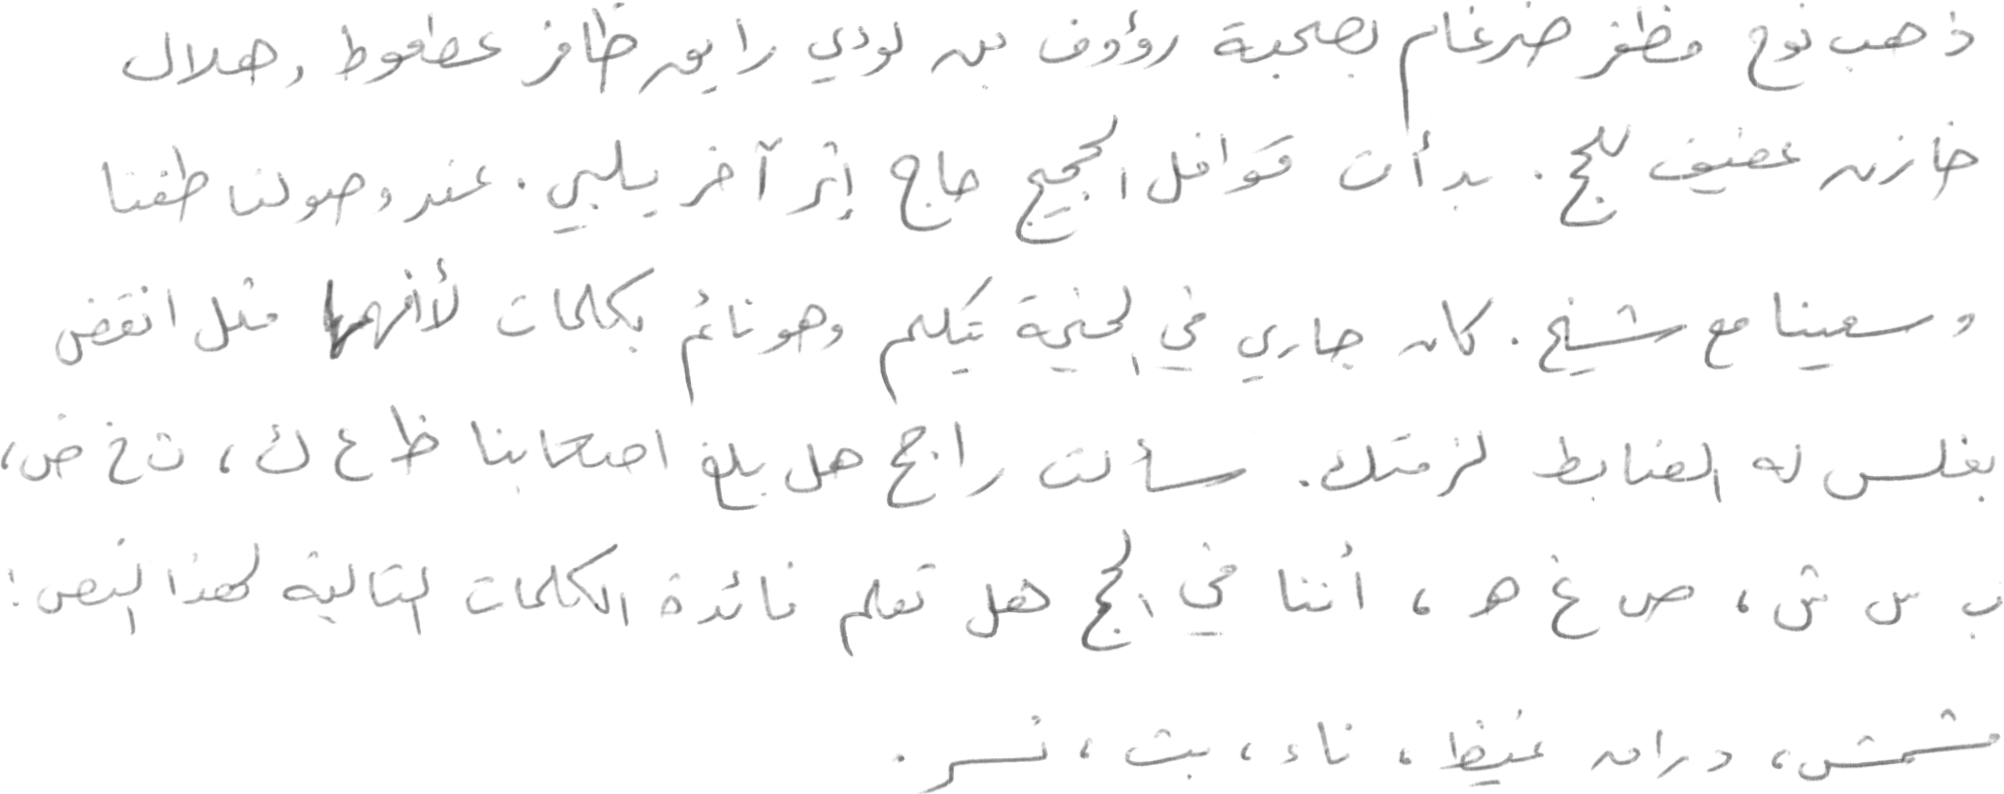 ذهب نوح مظفر ضرغام بصحبة رؤوف بن لؤدي رايق ظافر عطعوط , هلال
خازن عفيف للحج . بدأت قوافل الحجيج حاج إثر آخر يلبي . عند وصولنا طفنا
وسعينا مع شيخ . كان جاري في الخيمة يتكلم وهو نائم بكلمات لأفهمها مثل انقض
بغلس له الضابط لزمتك . سألت راجح هل بلغ اصحابنا ظ ع ك ، ت خ ض ،
ب س ش ، ص غ ه ، أننا في الحج هل تعلم فائدة الكلمات التالية لهذا النص :
مشمش ، دراق غيظ ، ناء ، بث ، نسر .